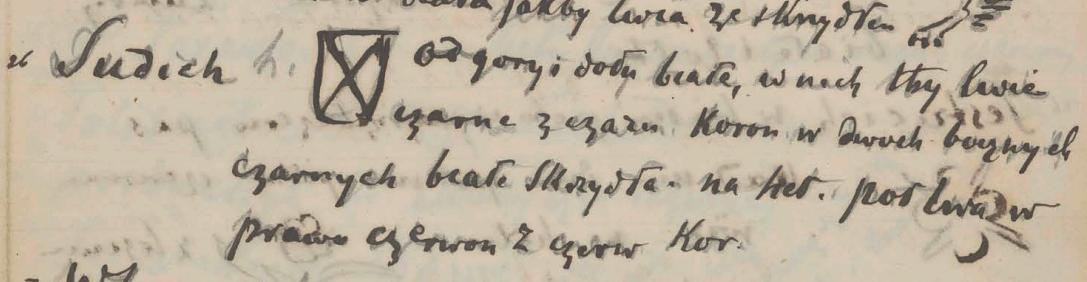 biała jakby lwia ze skrzydłem
26 Sudich h. od gory i dołu białe, w nich łby lwie
czarne z czarn Koron w dwoch bocznych
czarnych białe Skrzydła. na heł. poł lwa w
prawo czerwon z czerw Kor.